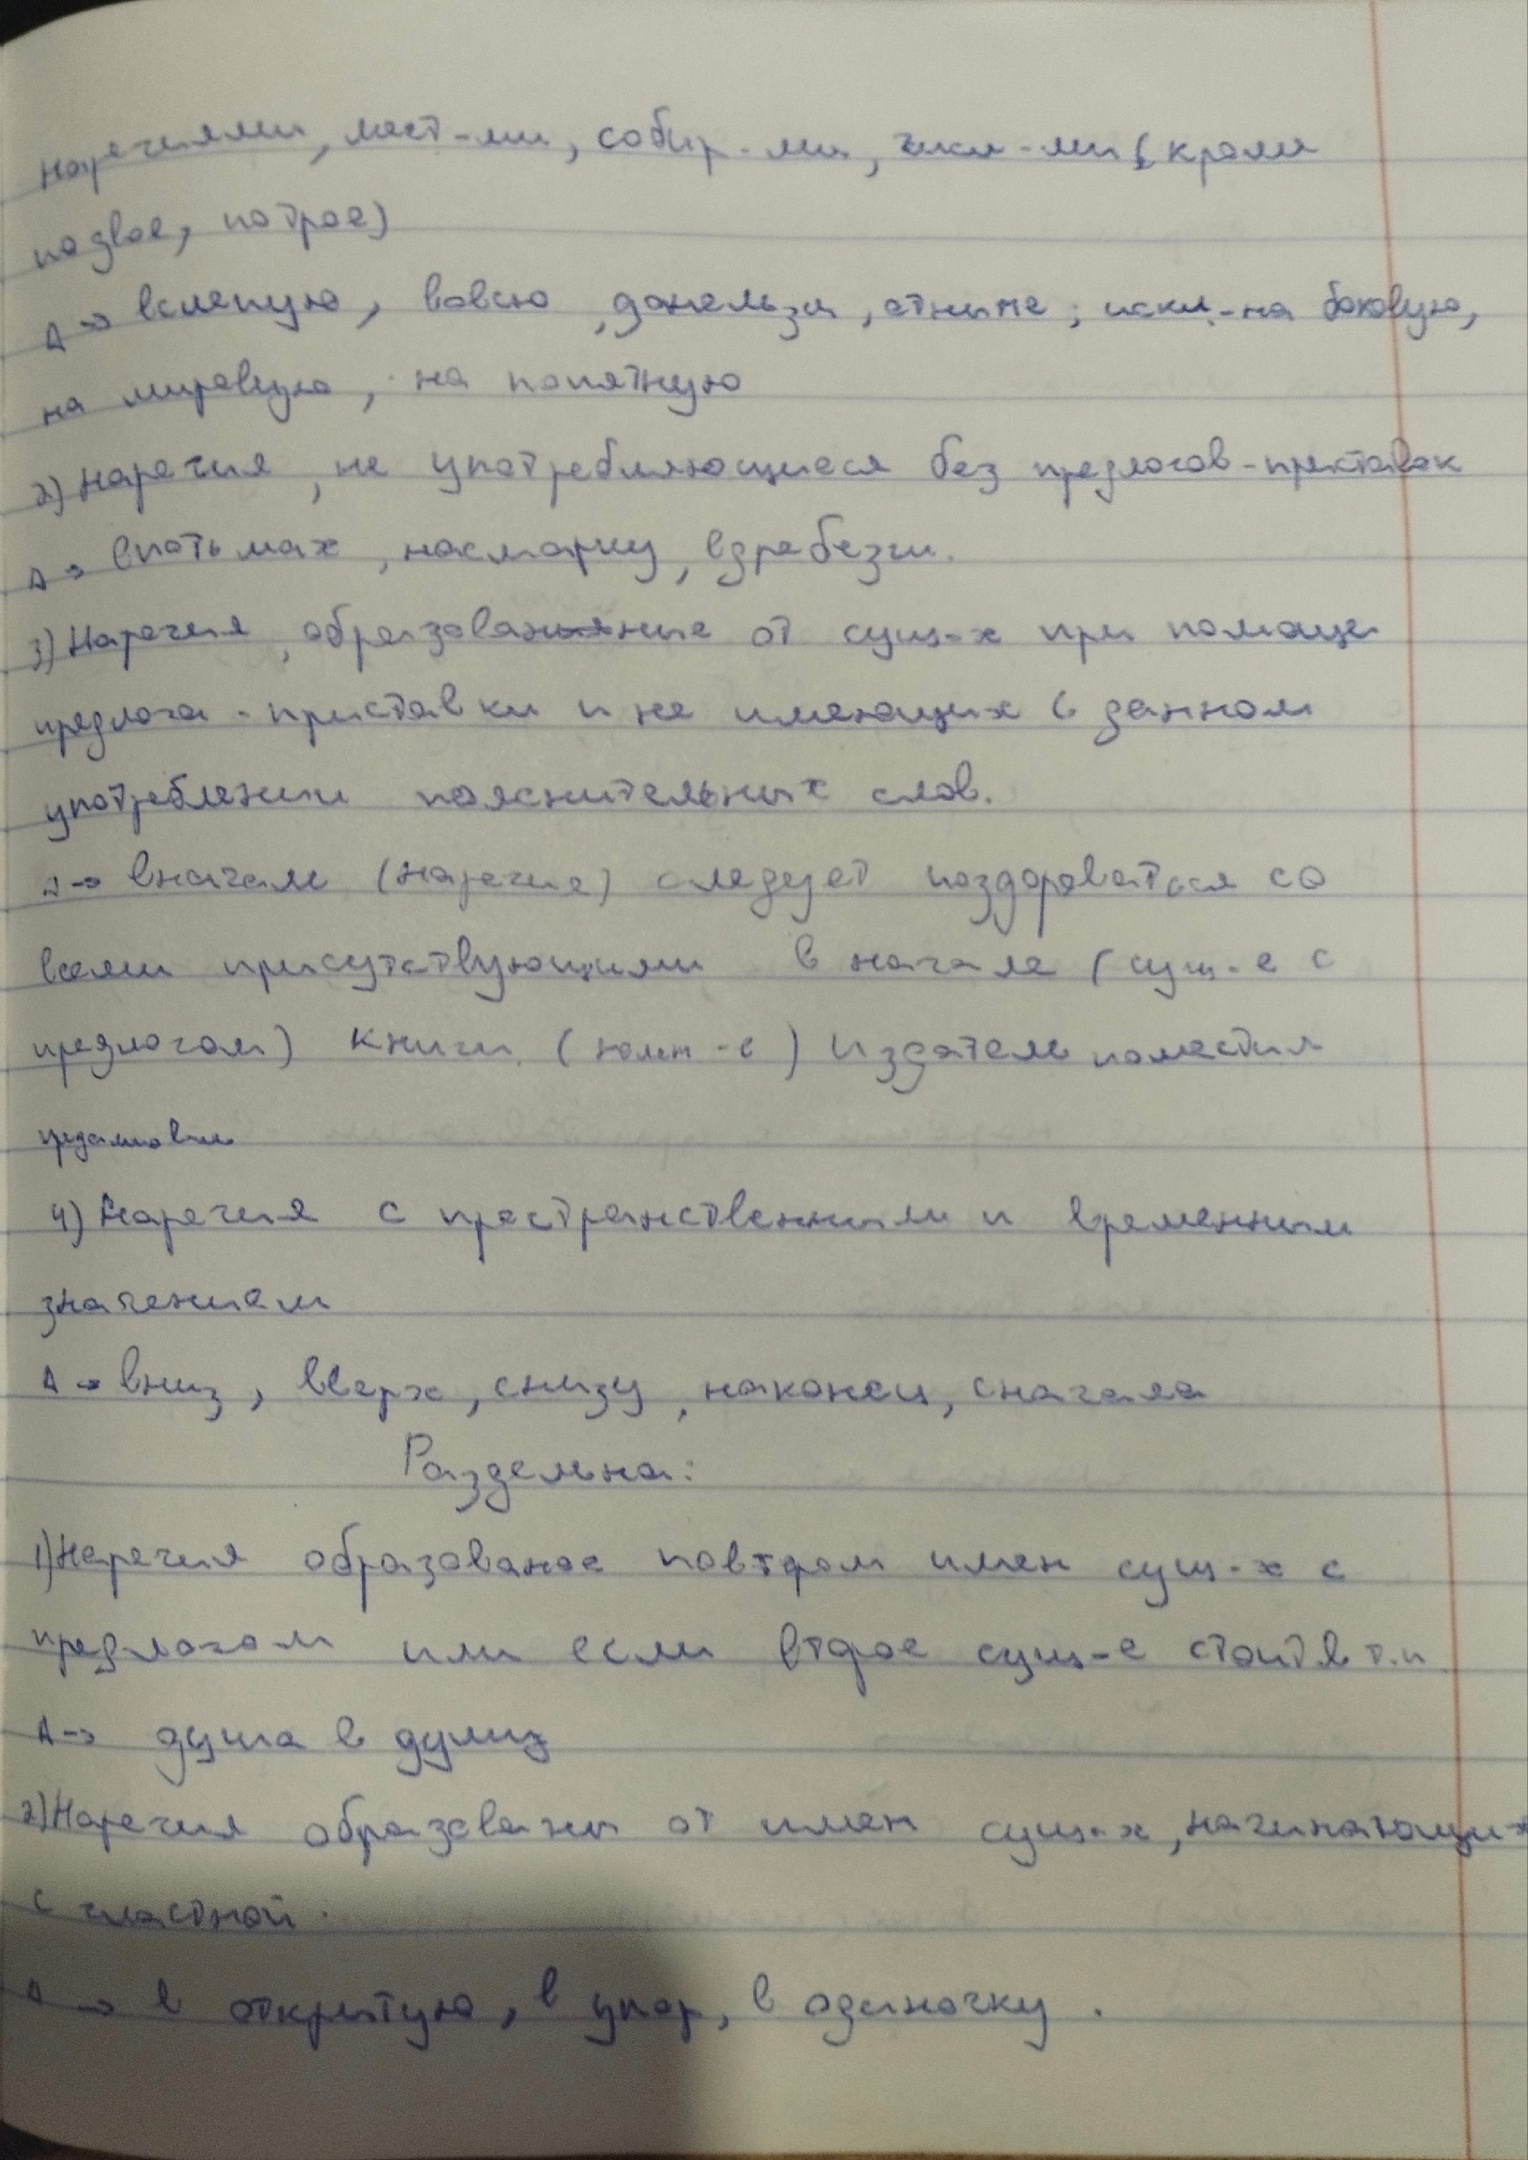 наречиями, мест-ми, собир-ми, числ-ми (кроме
по двое, по трое)
А → вслепую, вовсю, донельзя, отныне; искл.-на боковую,
на мировую, на попятную
2) наречия, не употребляющиеся без предлогов-приставок
А → впотьмах, насмарку, вдребезги.
3) Наречия, образованные от сущ-х при помощи
предлога-приставки и не имеющих в данном
употреблении пояснительных слов.
А → вначале (наречие) следует поздороваться со
всеми присутствующими в начале (сущ-е с
предлогом) книги ( -е) издатель поместил
предисловие
4) Наречия с пространственными и временным
значением
А → вниз, вверх, снизу, наконец, сначала
Раздельно:
1) Наречия образованое повтором имен сущ-х с
предлогом или если второе сущ-е стоит в т.п
А → душа в душу
2) Наречия образованы от имен сущ-х, начинающих
с гластной.
А → в открытую, в упор, в одиночку.